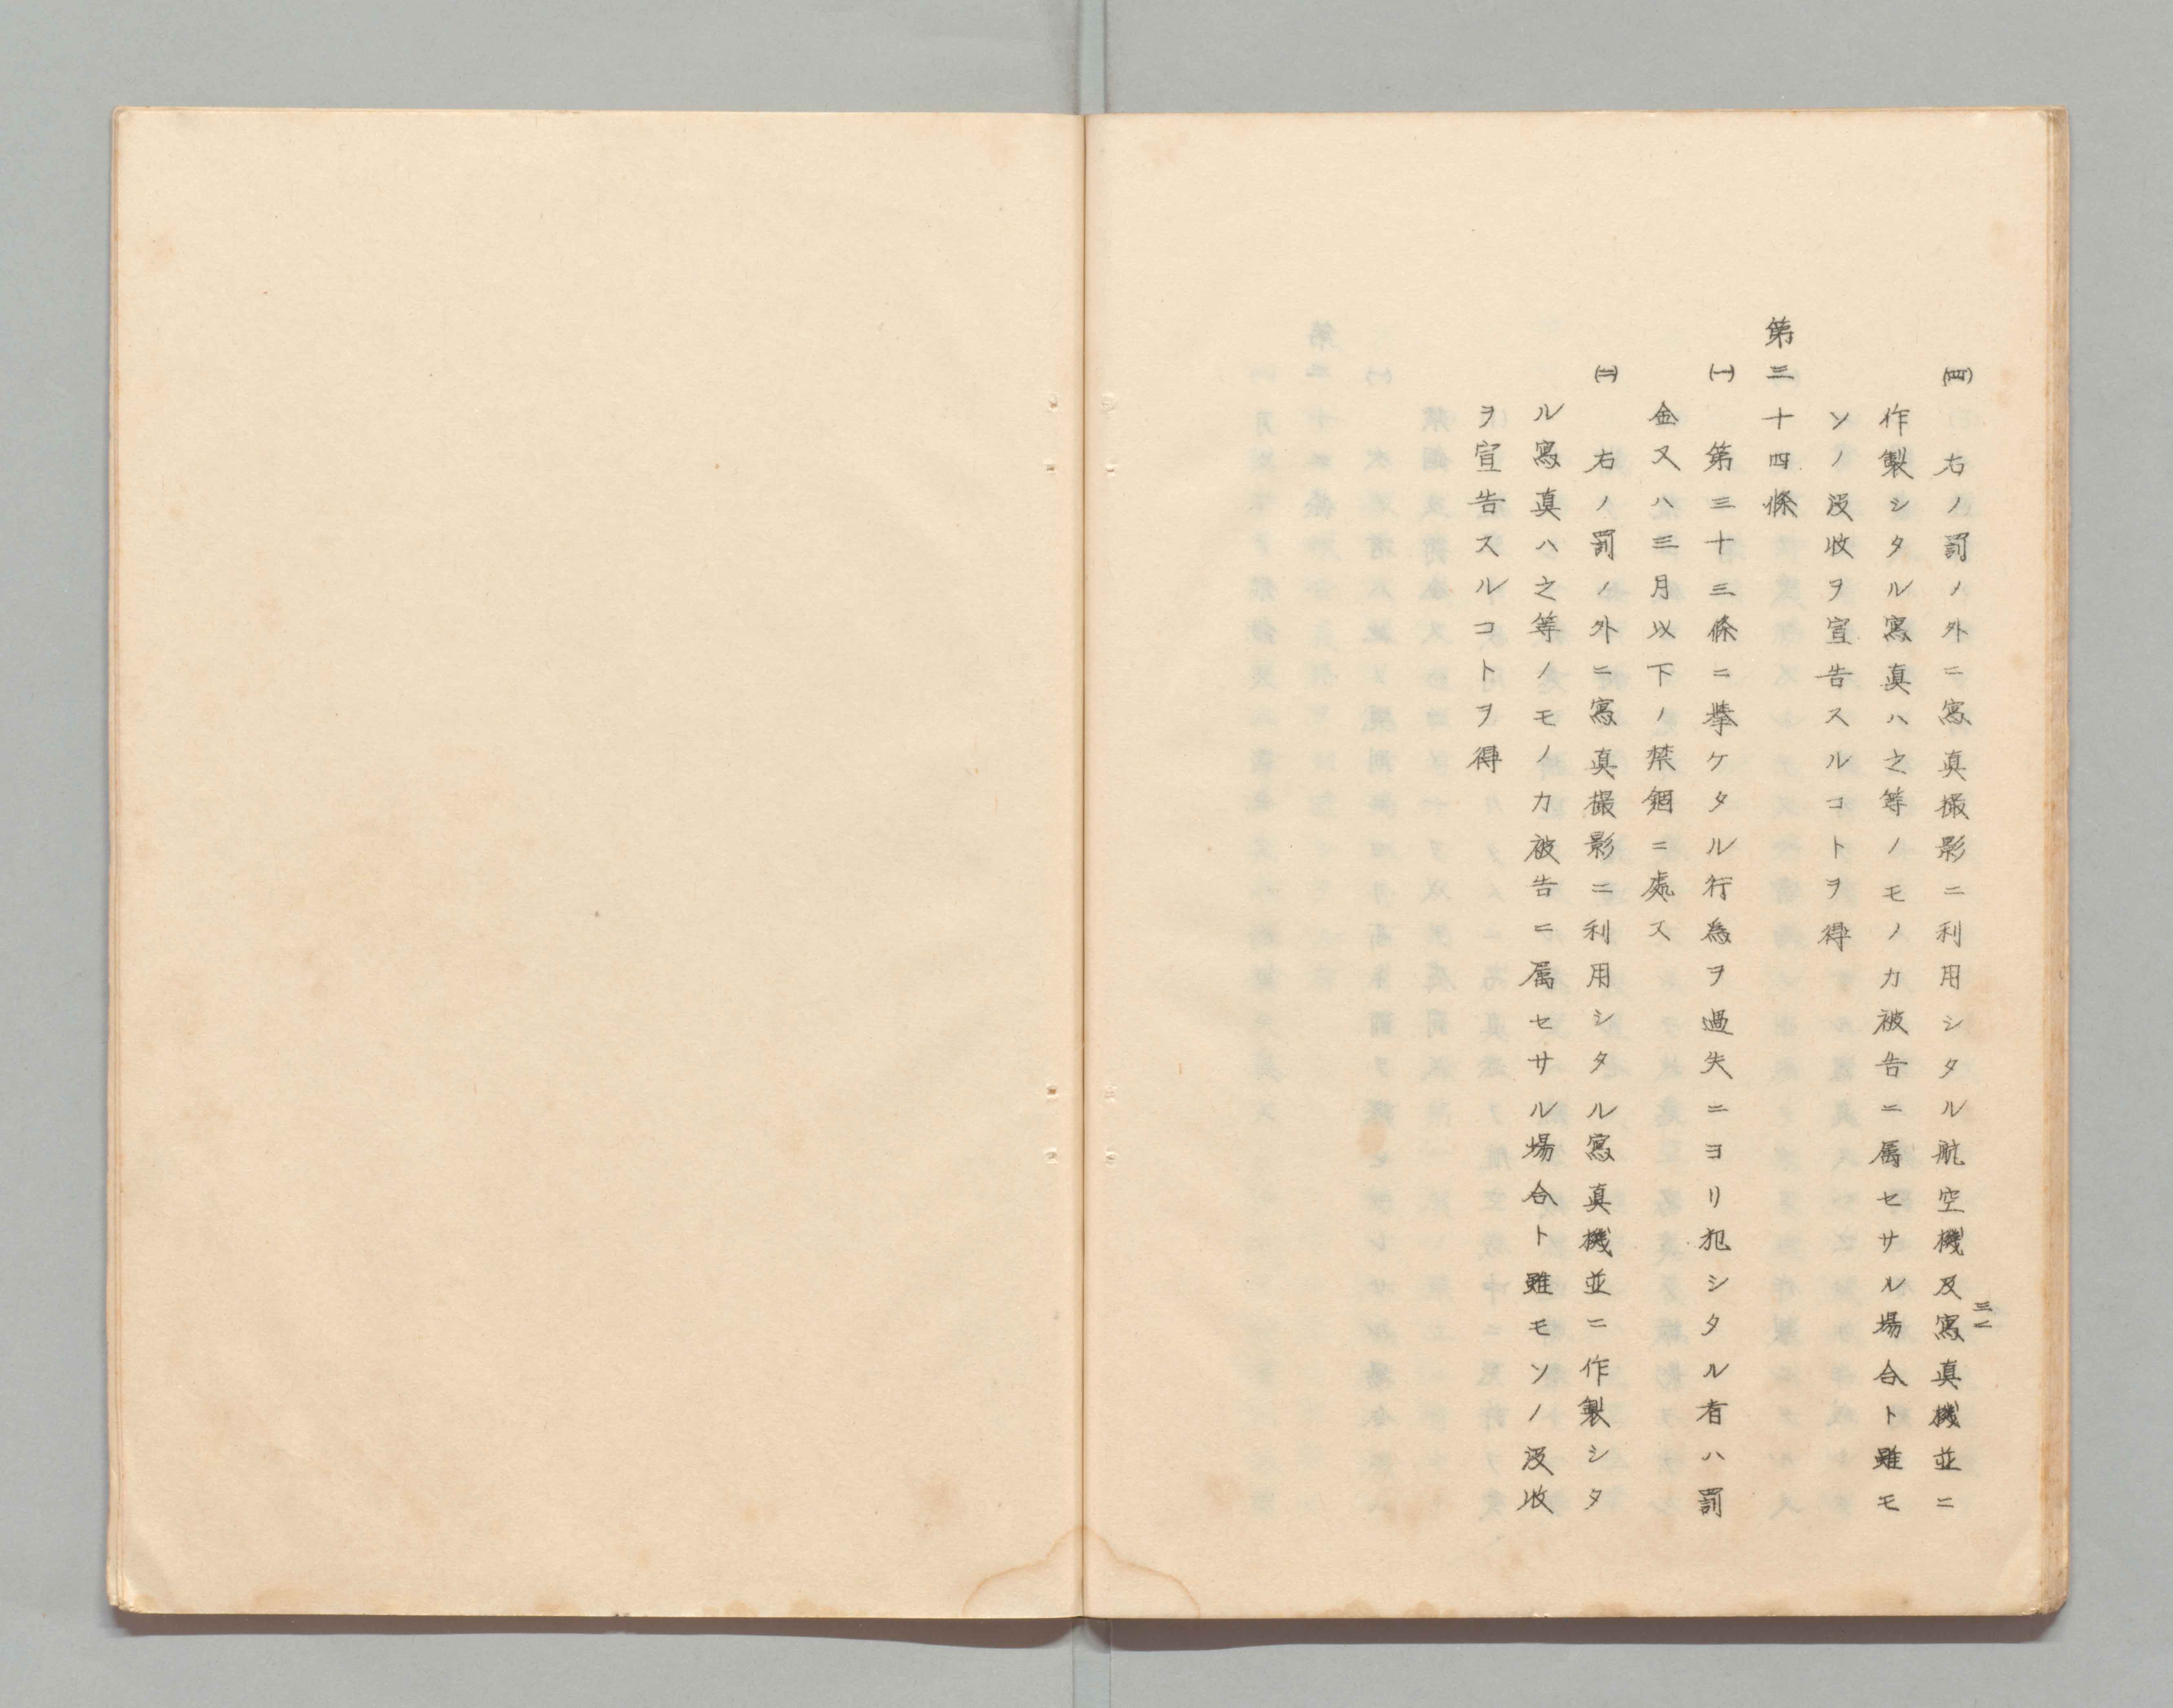 ㈣　右ノ罰ノ外ニ寫真撮影ニ利用シタル航空機及寫真機並ニ
作製シタル寫真ハ之等ノモノカ被告ニ属セサル場合ト雖モ
ソノ没收ヲ宣告スルコトヲ得
第三十四條
㈠　第三十三條ニ擧ケタル行為ヲ過失ニヨリ犯シタル者ハ罰
金又ハ三月以下ノ禁錮ニ處ス
㈡　右ノ罰ノ外ニ寫真撮影ニ利用シタル寫真機並ニ作製シタ
ル寫真ハ之等ノモノカ被告ニ属セサル場合ト雖モソノ没收
ヲ宣告スルコトヲ得